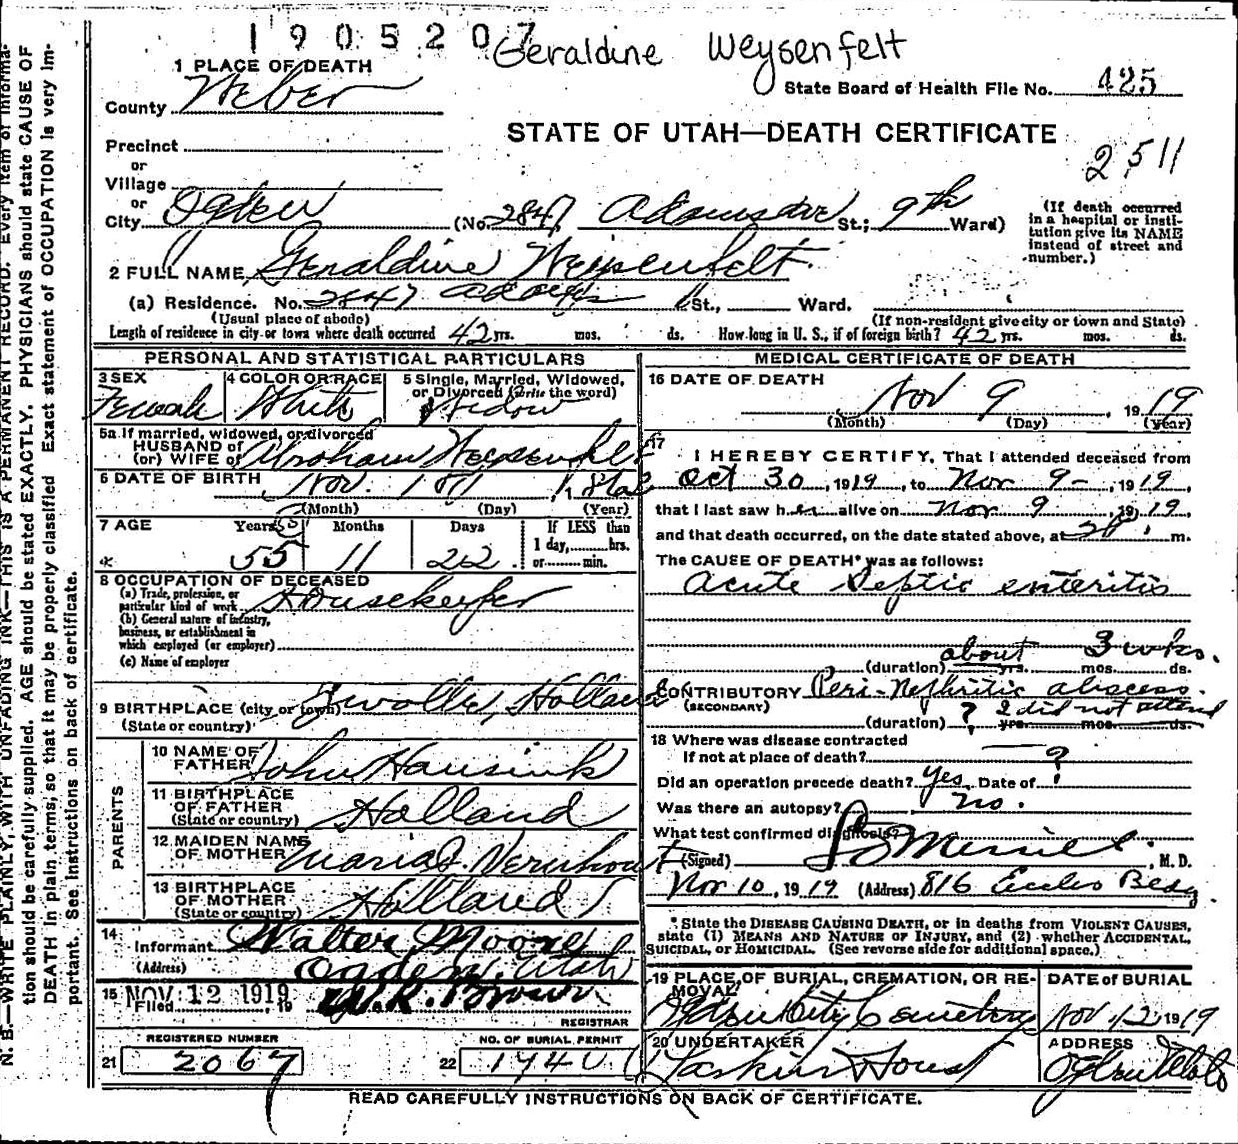 1905207 Geraldine Weysenfelt
1 PLACE OF DEATH
County Weber
State Board of Health File No. 425
STATE OF UTAH—DEATH CERTIFICATE
2511
Precinct
or
Village
or
City Ogden (No. 2847 Adams Ave St.; 9th Ward)
(If death occurred in a hospital or institution give its NAME instead of street and number.)
2 FULL NAME Geraldine Weysenfelt
(a) Residence. No. 2847 Adams St., Ward.
(Usual place of abode) (If non-resident give city or town and State)
Length of residence in city or town where death occurred 42 yrs. mos. ds. How long in U. S., if of foreign birth? 42 yrs. mos. ds.
PERSONAL AND STATISTICAL PARTICULARS
3 SEX 4 COLOR OR RACE 5 Single, Married, Widowed, or Divorced (write the word)
Female White Widow
5a If married, widowed, or divorced
HUSBAND of
(or) WIFE of Abraham
6 DATE OF BIRTH Nov.
(Month) (Day) (Year)
7 AGE Years Months Days If LESS than
1 day, hrs.
55 11 22 or min.
8 OCCUPATION OF DECEASED
(a) Trade, profession, or particular kind of work Housekeeper
(b) General nature of industry, business, or establishment in which employed (or employer)
(c) Name of employer
9 BIRTHPLACE (city or town) Zwolle, Holland
(State or country)
PARENTS
10 NAME OF FATHER John
11 BIRTHPLACE OF FATHER Holland
(State or country)
12 MAIDEN NAME OF MOTHER Maria
13 BIRTHPLACE OF MOTHER Holland
(State or country)
14 Informant Walter Moore
(Address) Ogden, Utah
15 NOV 12 1919
Filed , 19 W.R. Brown
REGISTRAR
REGISTERED NUMBER NO. OF BURIAL PERMIT
21 2067 22 1740
MEDICAL CERTIFICATE OF DEATH
16 DATE OF DEATH Nov 9, 1919
(Month) (Day) (year)
17 I HEREBY CERTIFY, That I attended deceased from
Oct 30, 1919, to Nov 9-, 1919,
that I last saw her alive on Nov 9, 1919,
and that death occurred, on the date stated above, at m.
The CAUSE OF DEATH* was as follows:
Acute Septic enteritis
(duration) about yrs. mos. 3 wks. ds.
CONTRIBUTORY Peri-Nephritic abscess.
(SECONDARY)
(duration) ? yrs. mos. ds. I did not attend
18 Where was disease contracted
if not at place of death? ?
Did an operation precede death? yes Date of ?
Was there an autopsy? no.
What test confirmed diagnosis?
(Signed) , M. D.
Nov 10, 1919 (Address) 816 Eccles Bldg.
*State the DISEASE CAUSING DEATH, or in deaths from VIOLENT CAUSES, state (1) MEANS AND NATURE OF INJURY, and (2) whether ACCIDENTAL, SUICIDAL, or HOMICIDAL. (See reverse side for additional space.)
19 PLACE OF BURIAL, CREMATION, OR REMOVAL DATE OF BURIAL
City Cemetery Nov. 12 1919
20 UNDERTAKER ADDRESS
Larkin Ogden Utah
READ CAREFULLY INSTRUCTIONS ON BACK OF CERTIFICATE.
N. B.—WRITE PLAINLY, WITH UNFADING INK—THIS IS A PERMANENT RECORD. Every item of informa-
tion should be carefully supplied. AGE should be stated EXACTLY. PHYSICIANS should state CAUSE OF
DEATH in plain terms, so that it may be properly classified Exact statement of OCCUPATION is very im-
portant. See instructions on back of certificate.